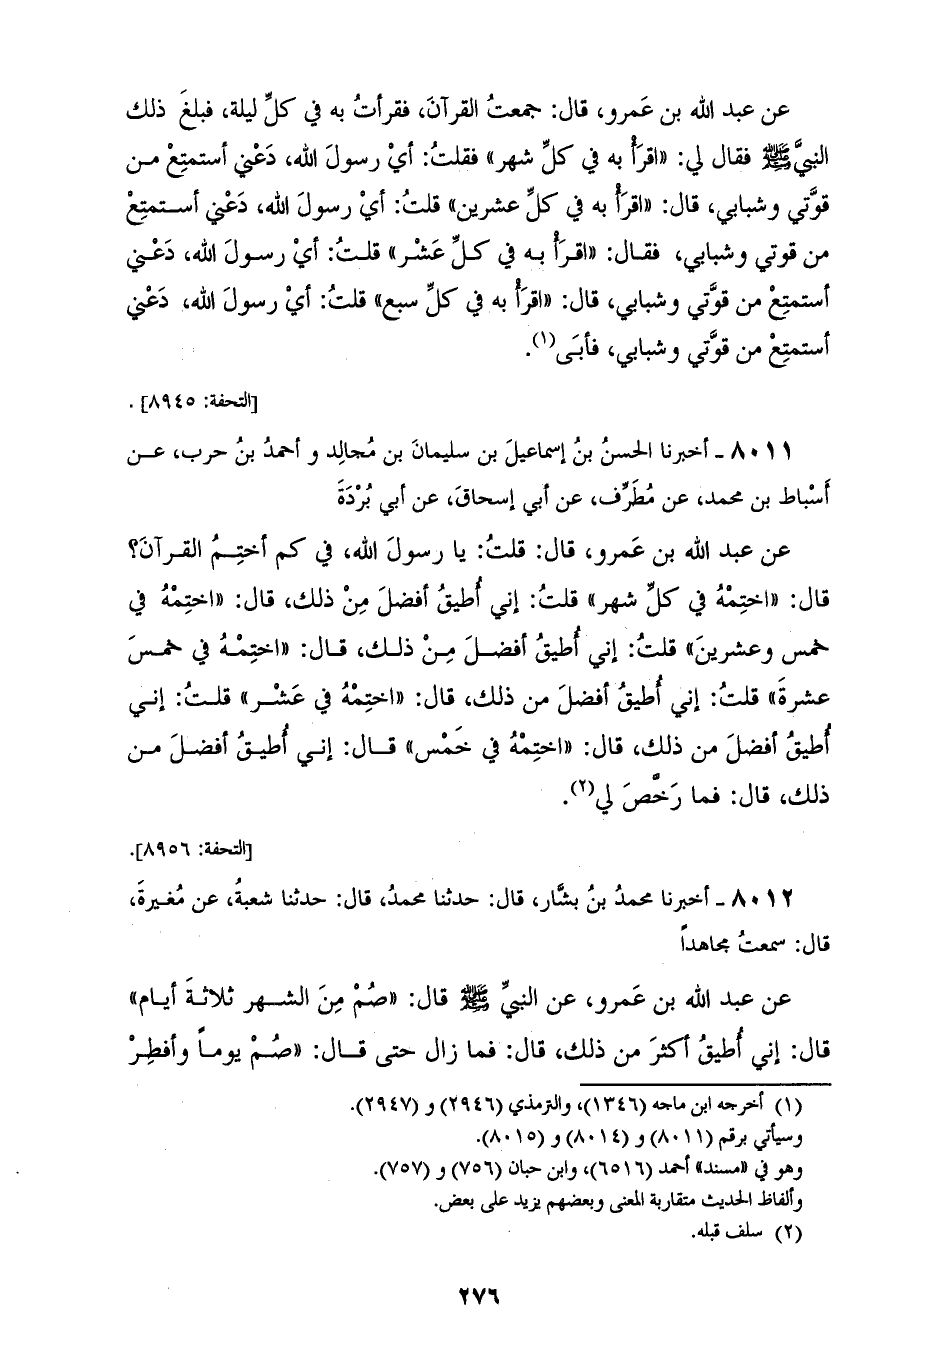 عن عبد الله بن عَمرو، قال: جمعتُ القرآنَ، فقرأتُ به في كلِّ ليلة، فبلغَ ذلك
النبيَّ ﷺ فقال لي: «اقرَأْ به في كلِّ شهر» فقلتُ: أيْ رسولَ الله، دَعْني أستمتِعْ من
قوَّتي وشبابي، قال: «اقرَأْ به في كلِّ عشرين» قلتُ: أيْ رسولَ الله، دَعْني أستمتِعْ
من قوتي وشبابي، فقال: «اقرَأْ به في كلِّ عَشْر» قلتُ: أيْ رسولَ الله، دَعْني
أستمتِعْ من قوَّتي وشبابي، قال: «اقرَأْ به في كلِّ سبع» قلتُ: أيْ رسولَ الله، دَعْني
أستمتِعْ من قوَّتي وشبابي، فأبَى(١).
[التحفة: ٨٩٤٥].
٨٠١١ ـ أخبرنا الحسنُ بنُ إسماعيلَ بن سليمانَ بن مُجالِد و أحمدُ بنُ حرب، عن
أَسْباط بن محمد، عن مُطَرِّف، عن أبي إسحاقَ، عن أبي بُرْدَةَ
عن عبد الله بن عَمرو، قال: قلتُ: يا رسولَ الله، في كم أختِمُ القرآنَ؟
قال: «اختِمْهُ في كلِّ شهر» قلتُ: إني أُطيقُ أفضلَ مِنْ ذلك، قال: «اختِمْهُ في
خمس وعشرينَ» قلتُ: إني أُطيقُ أفضلَ مِنْ ذلك، قال: «اختِمْهُ في خمسَ
عشرةَ» قلتُ: إني أُطيقُ أفضلَ من ذلك، قال: «اختِمْهُ في عَشْر» قلتُ: إني
أُطيقُ أفضلَ من ذلك، قال: «اختِمْهُ في خَمْس» قال: إني أُطيقُ أفضلَ من
ذلك، قال: فما رَخَّصَ لي(٢).
[التحفة: ٨٩٥٦].
٨٠١٢ ـ أخبرنا محمدُ بنُ بشَّار، قال: حدثنا محمدُ، قال: حدثنا شعبةُ، عن مُغيرةَ،
قال: سمعتُ مجاهداً
عن عبد الله بن عَمرو، عن النبيِّ ﷺ قال: «صُمْ مِنَ الشهر ثلاثةَ أيام»
قال: إني أُطيقُ أكثرَ من ذلك، قال: فما زال حتى قال: «صُمْ يوماً وأفطِرْ
(١) أخرجه ابن ماجه (١٣٤٦)، والترمذي (٢٩٤٦) و (٢٩٤٧).
وسيأتي برقم (٨٠١١) و (٨٠١٤) و (٨٠١٥).
وهو في «مسند» أحمد (٦٥١٦)، وابن حبان (٧٥٦) و (٧٥٧).
وألفاظ الحديث متقاربة المعنى وبعضهم يزيد على بعض.
(٢) سلف قبله.
٢٧٦